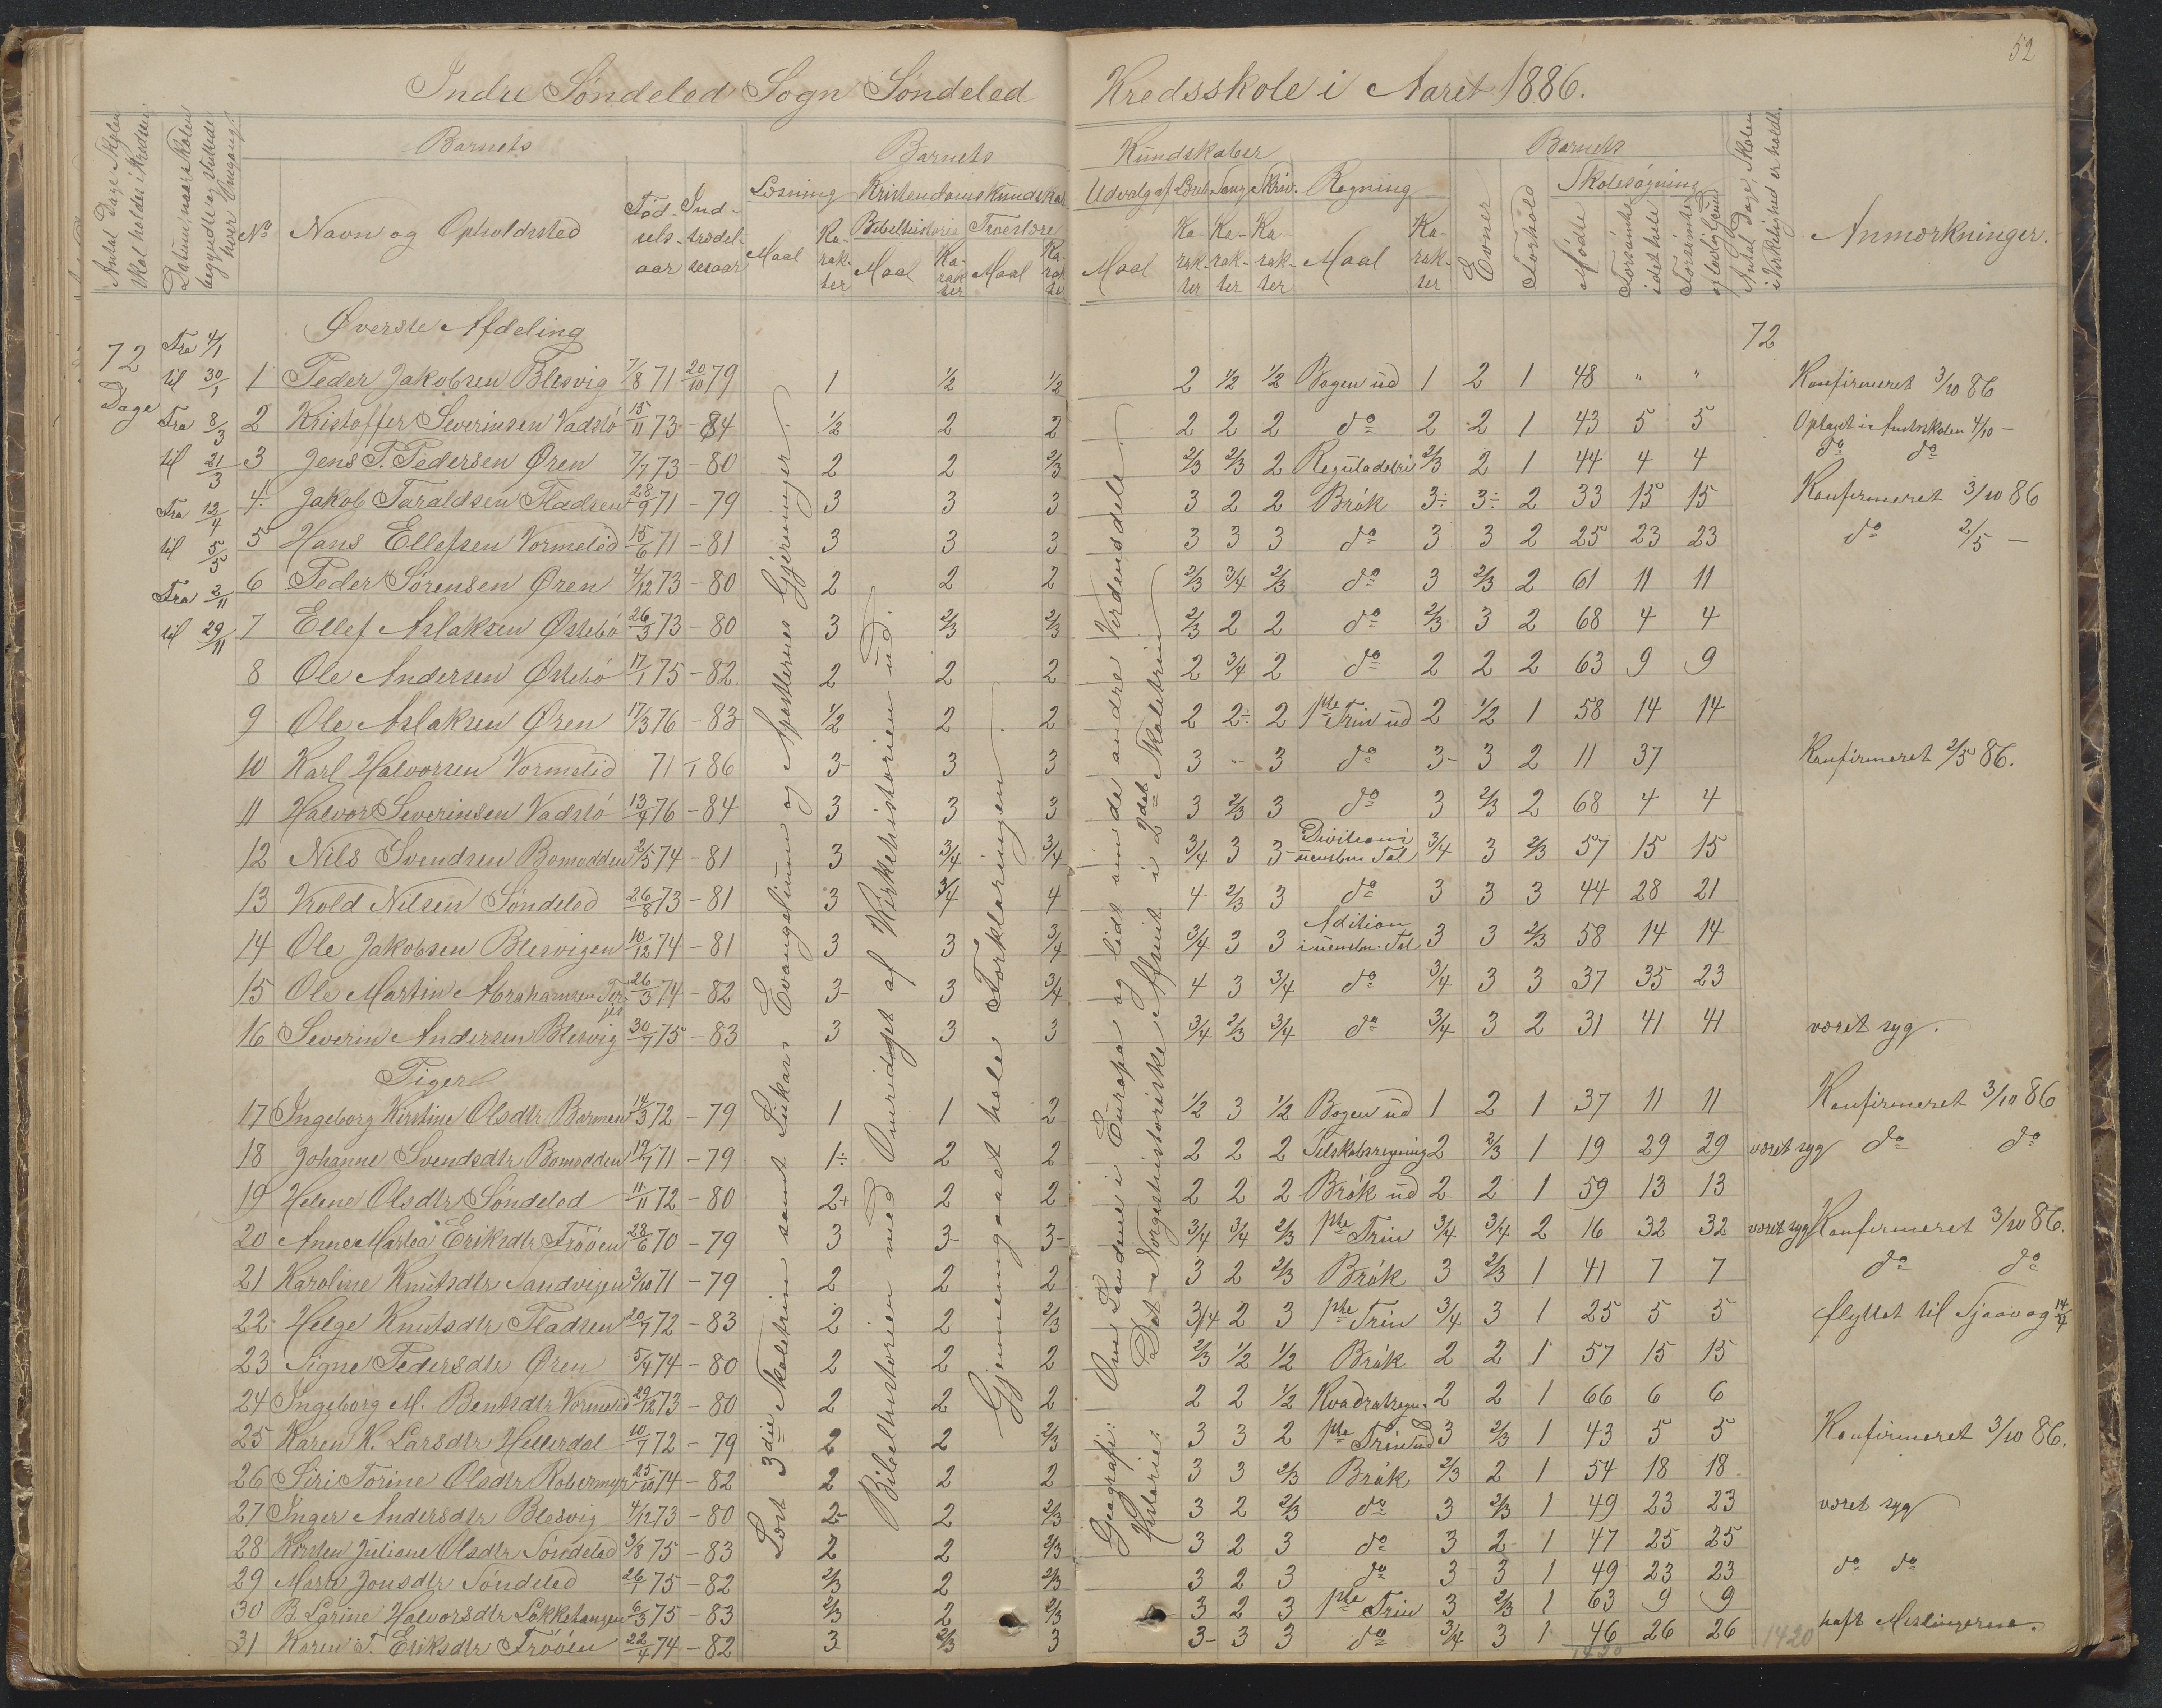 52
Indre Søndeled Sogn Søndeled Kredsskole i Aaret 1886.
Antal Dage Skolen skal holdes i Kredsen
Datum, naar Skolen begyndte og sluttede hver Omgang.
No
Barnets
Navn og Opholdssted
Fødselsaar
Indtrædelsesaar
Barnets Kundskaber
Læsning Maal Karakter
Kristendomskundskab
Bibelhistorie Maal Karakter
Troeslære Maal Karakter
Udvalg af Læseb. Maal Karakter
Sang Karakter
Skriv. Karakter
Regning Maal Karakter
Barnets
Evner
Forhold
Skolesøgning
Mødte
Forsømte i det hele
Forsømte af lovlig Grund
Antal Dage, Skolen i Virkelighed er holdt.
Anmærkninger.
72 Dage
Fra 4/1
til 30/1
Fra 8/3
til 21/3
Fra 12/4
til 5/5
Fra 2/11
til 29/11
Øverste Afdeling
72
1 Peder Jakobsen Blesvig 7/8 71 20/10 79 1 1/2 1/2 2 1/2 1/2 Bogen ud 1 2 1 48 " " Konfirmeret 3/10 86
2 Kristoffer Severinsen Vadslö 15/11 73 - 84 1/2 2 2 2 2 2 do 2 2 1 43 5 5 Optaget i Amtsskolen 4/10 -
3 Jens P. Pedersen Øren 7/7 73 - 80 2 2 2/3 2/3 2/3 2 Reguladetri 2/3 2 1 44 4 4 do do
4. Jakob Taraldsen Fladsen 28/9 71 - 79 3 3 3 3 2 2 Brök 3÷ 3÷ 2 33 15 15 Konfirmeret 3/10 86
5 Hans Ellefsen Vormelid 15/6 71 - 81 3 3 3 3 3 3 do 3 3 2 25 23 23 do 2/5 -
6 Peder Sørensen Øren 4/12 73 - 80 2 2 2 2/3 3/4 2/3 do 3 2/3 2 61 11 11
7 Ellef Aslaksen Østebö 26/3 73 - 80 3 2/3 2/3 2/3 2 2 do 2/3 3 2 68 4 4
8 Ole Andersen Østebö 17/1 75 - 82. 2 2 2 2 3/4 2 do 2 2 2 63 9 9
9 Ole Aslaksen Øren 17/3 76 - 83 1/2 2 2 2 2÷ 2 1ste Trin ud 2 1/2 1 58 14 14
10 Karl Halvorsen Vormelid 71 - 86 3- 3 3 3 - 3 do 3- 3 2 11 37 Konfirmeret 2/5 86.
11 Halvor Severinsen Vadslö 13/9 76 - 84 3 3 3 3 2/3 3 do 3 2/3 2 68 4 4
12 Nils Svendsen Bomodden 2/5 74 - 81 3 3/4 3/4 3/4 3 3 Division i uensbn. Tal 3/4 3 2/3 57 15 15
13 Vrold Nilsen Søndeled 26/8 73 - 81 3 3/4 4 4 2/3 3 do 3 3 3 44 28 21
14 Ole Jakobsen Blesvigen 10/12 74 - 81 3 3 3/4 3/4 3 3 Adition i uensbn. Tal 3 3 2/3 58 14 14
15 Ole Martin Abrahamsen 26/3 74 - 82 3- 3 3/4 4 3 3/4 do 3/4 3 3 37 35 23
16 Severin Andersen Blesvig 30/7 75 - 83 3 3 3 3/4 2/3 3/4 do 3/4 3 2 31 41 41 været syg.
Piger
17 Ingeborg Kirstine Olsdtr Barmen 14/3 72 - 79 1 1 2 1/2 3 1/2 Bogen ud 1 2 1 37 11 11 Konfirmeret 3/10 86
18 Johanne Svendsdtr Bomodden 19/7 71 - 79 1÷ 2 2 2 2 2 Selskabsregning 2 2/3 1 19 29 29 været syg do do
19 Helene Olsdtr Søndeled 11/11 72 - 80 2+ 2 2 2 2 2 Brök ud 2 2 1 59 13 13
20 Anne Martea Eriksdtr Frööen 28/6 70 - 79 3 3- 3- 3/4 3/4 2/3 1ste Trin 3/4 3/4 2 16 32 32 været syg Konfirmeret 3/10 86.
21 Karoline Knutsdtr Sandvigen 3/10 71 - 79 2 2 2 3 2 2/3 Brök 3 2/3 1 41 7 7 do do
22 Helge Knutsdtr Fladsen 20/7 72 - 83 2 2 2/3 3/4 2 3 1ste Trin 3/4 3 1 25 5 5 flyttet til Sjaavog 14/4
23 Signe Pedersdtr Øren 5/4 74 - 80 2 2 2 2/3 1/2 1/2 Brök 2 2 1 57 15 15
24 Ingeborg M. Bentsdtr Vormelid 29/12 73 - 80 2 2 2 2 2 1/2 Kvadratregn. 2 2 1 66 6 6
25 Karen K. Larsdtr Hellerdal 10/7 72 - 79 2 2 2/3 3 3 2 1ste Trin ud 3 2/3 1 43 5 5 Konfirmeret 3/10 86.
26 Siri Torine Olsdtr Robermyr 25/10 74 - 82 2 2 2 3 3 2/3 Brök 2/3 2 1 54 18 18
27 Inger Andersdtr Blesvig 4/12 73 - 80 2- 2 2/3 3 2 2/3 do 3 2/3 1 49 23 23 været syg
28 Kirsten Juliane Olsdtr Söndeled 3/8 75 - 83 2 2 2/3 3 2 3 do 3 2 1 47 25 25
29 Marte Jonsdtr Söndeled 26/1 75 - 82 2/3 2 2/3 3 2 3 do 3 3 1 49 23 23 do do
30 B. Larine Halvorsdtr Lökkehaugen 6/3 75 - 83 2/3 2 2/3 3 2 3 1ste Trin 3 2/3 1 63 9 9
31 Karen T. Eriksdtr Frööén 22/4 74 - 82 3 2/3 3 3- 3 3 do 3/4 3 1 46 26 26 1420 haft Meslingerne.
1420
Læst 3die Skoletrin samt Lukas Evangelium og Apostlenes Gjerninger.
Bibelhistorien med Omridset af Kirkehistorien ud.
Gjennemgaaet hele Forklaringen.
Geografi: Om Landene i Europa og lidt om de andre Verdensdele.
Historie: Det Norgeshistoriske Afsnit i 2det Skoletrin